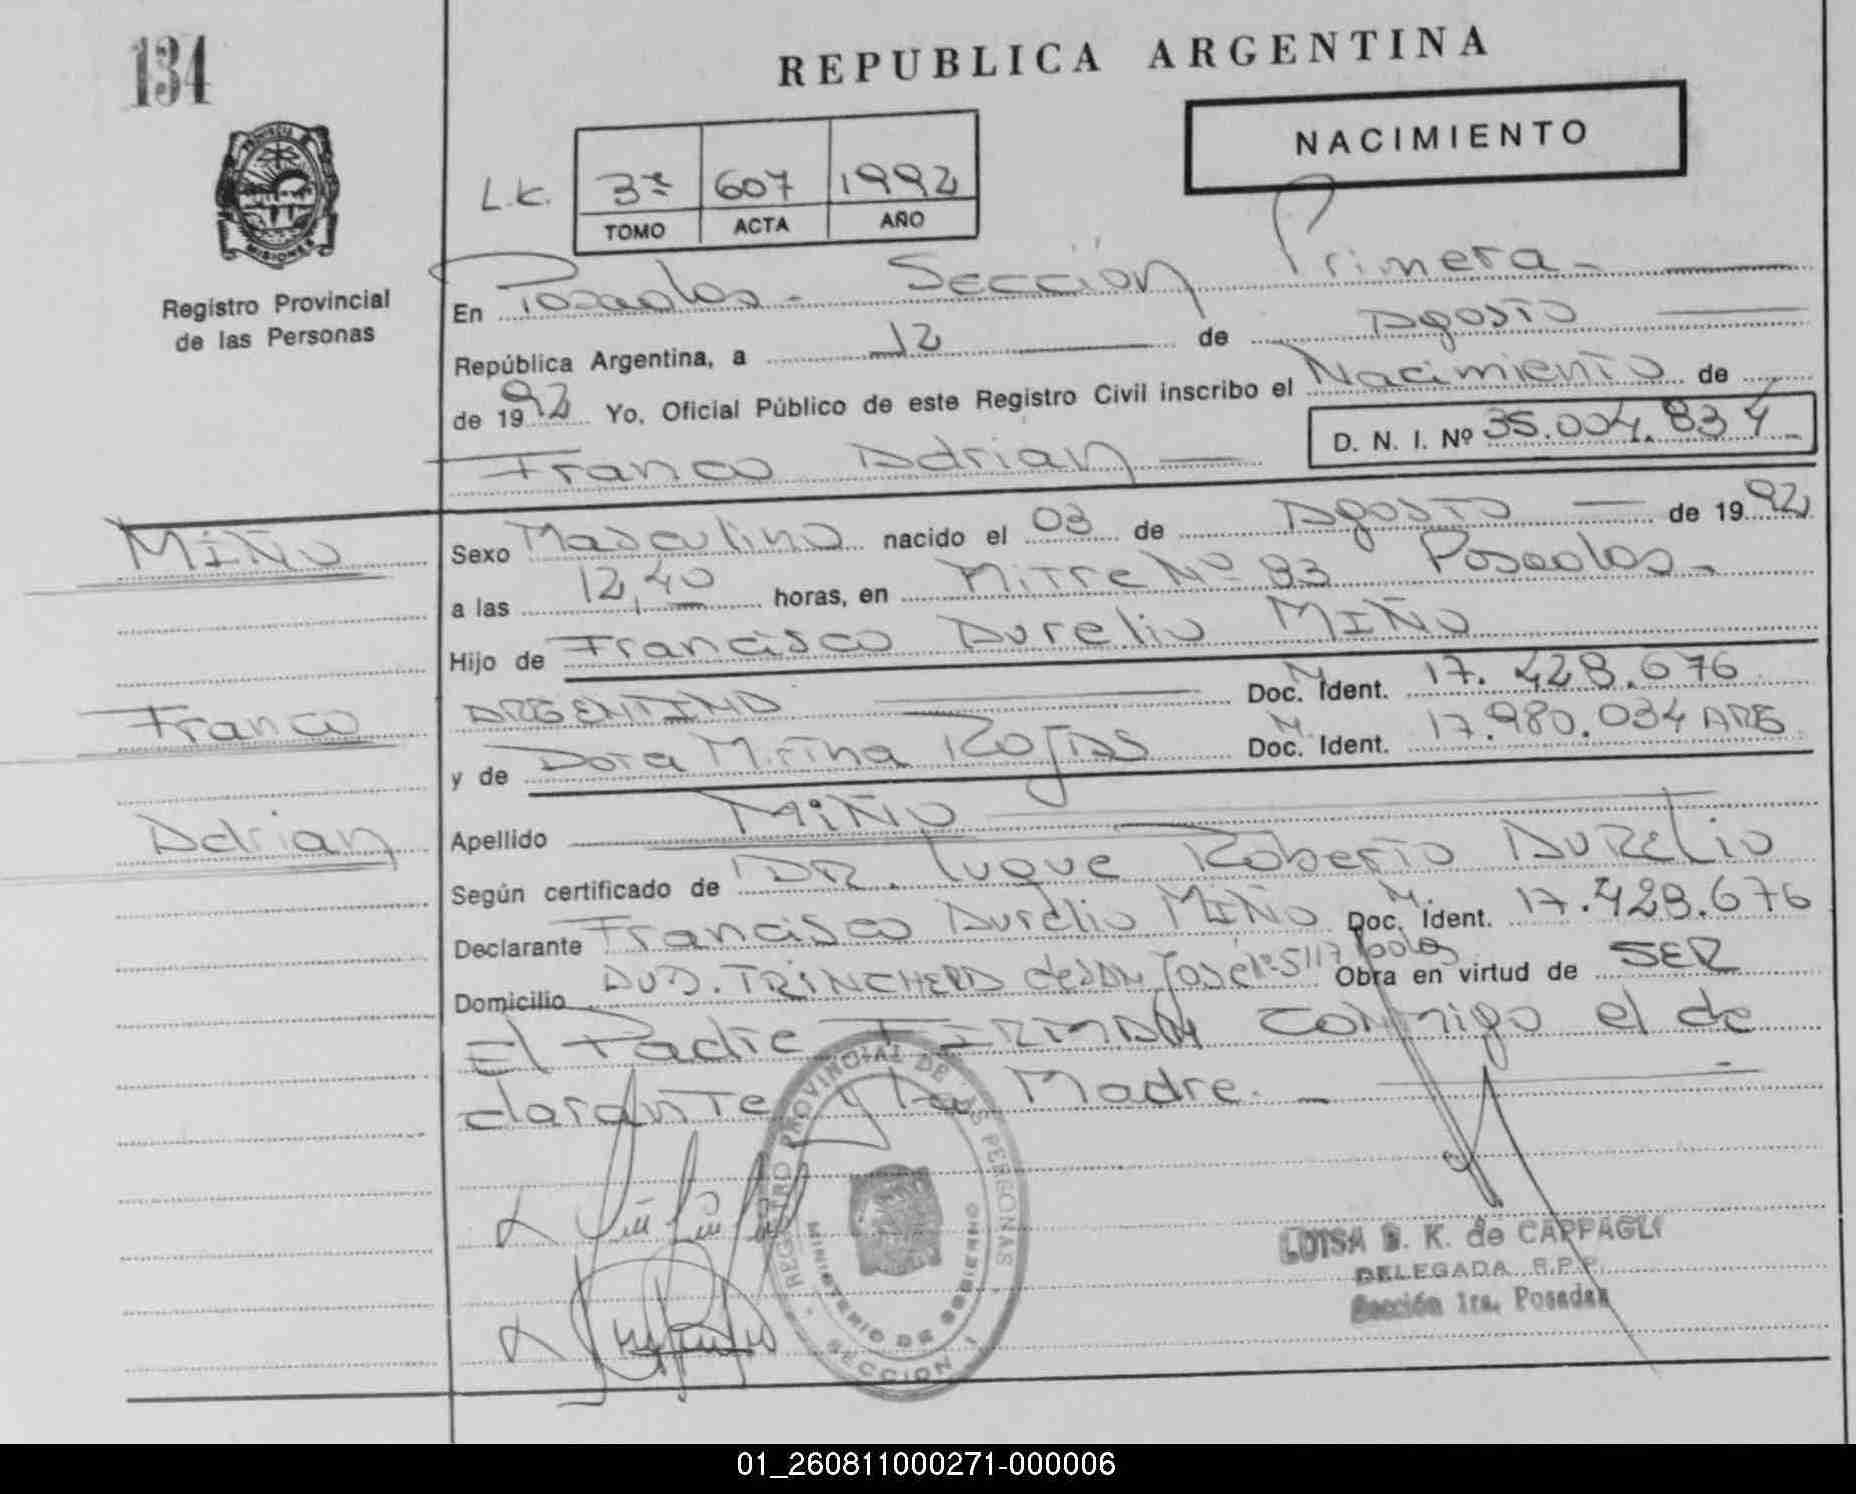 134
REPUBLICA ARGENTINA
NACIMIENTO
L.K. 3º 607 1992
TOMO ACTA AÑO
PROVINCIA
MISIONES
Registro Provincial
de las Personas
En Posadas - Sección Primera -
República Argentina, a 12 de Agosto
de 1992 Yo, Oficial Público de este Registro Civil inscribo el Nacimiento de
Franco Adrian D. N. I. Nº 35.004.834
MIÑO
Sexo Masculino nacido el 03 de Agosto de 1992
a las 12,40 horas, en Mitre Nº 93 Posadas -
Hijo de Francisco Aurelio MIÑO
Franco
ARGENTINO Doc. N. Ident. 17.428.676
y de Dora Mirtha ROJAS Doc. N. Ident. 17.980.034 ARG
Adrian
Apellido MIÑO
Según certificado de DR. Luque Roberto AURELIO
Declarante Francisco Aurelio MIÑO Doc. N. Ident. 17.428.676
Domicilio AVD. TRINCHERA de San José Nº 5117 Pdas Obra en virtud de SER
El Padre FIRMAN conmigo el de
clarante y la Madre. -
REGISTRO PROVINCIAL DE LAS PERSONAS
MINISTERIO DE GOBIERNO
SECCION 1
LUISA B. K. de CAPPAGLI
DELEGADA R.P.P.
Sección 1ra. Posadas
01_260811000271-000006